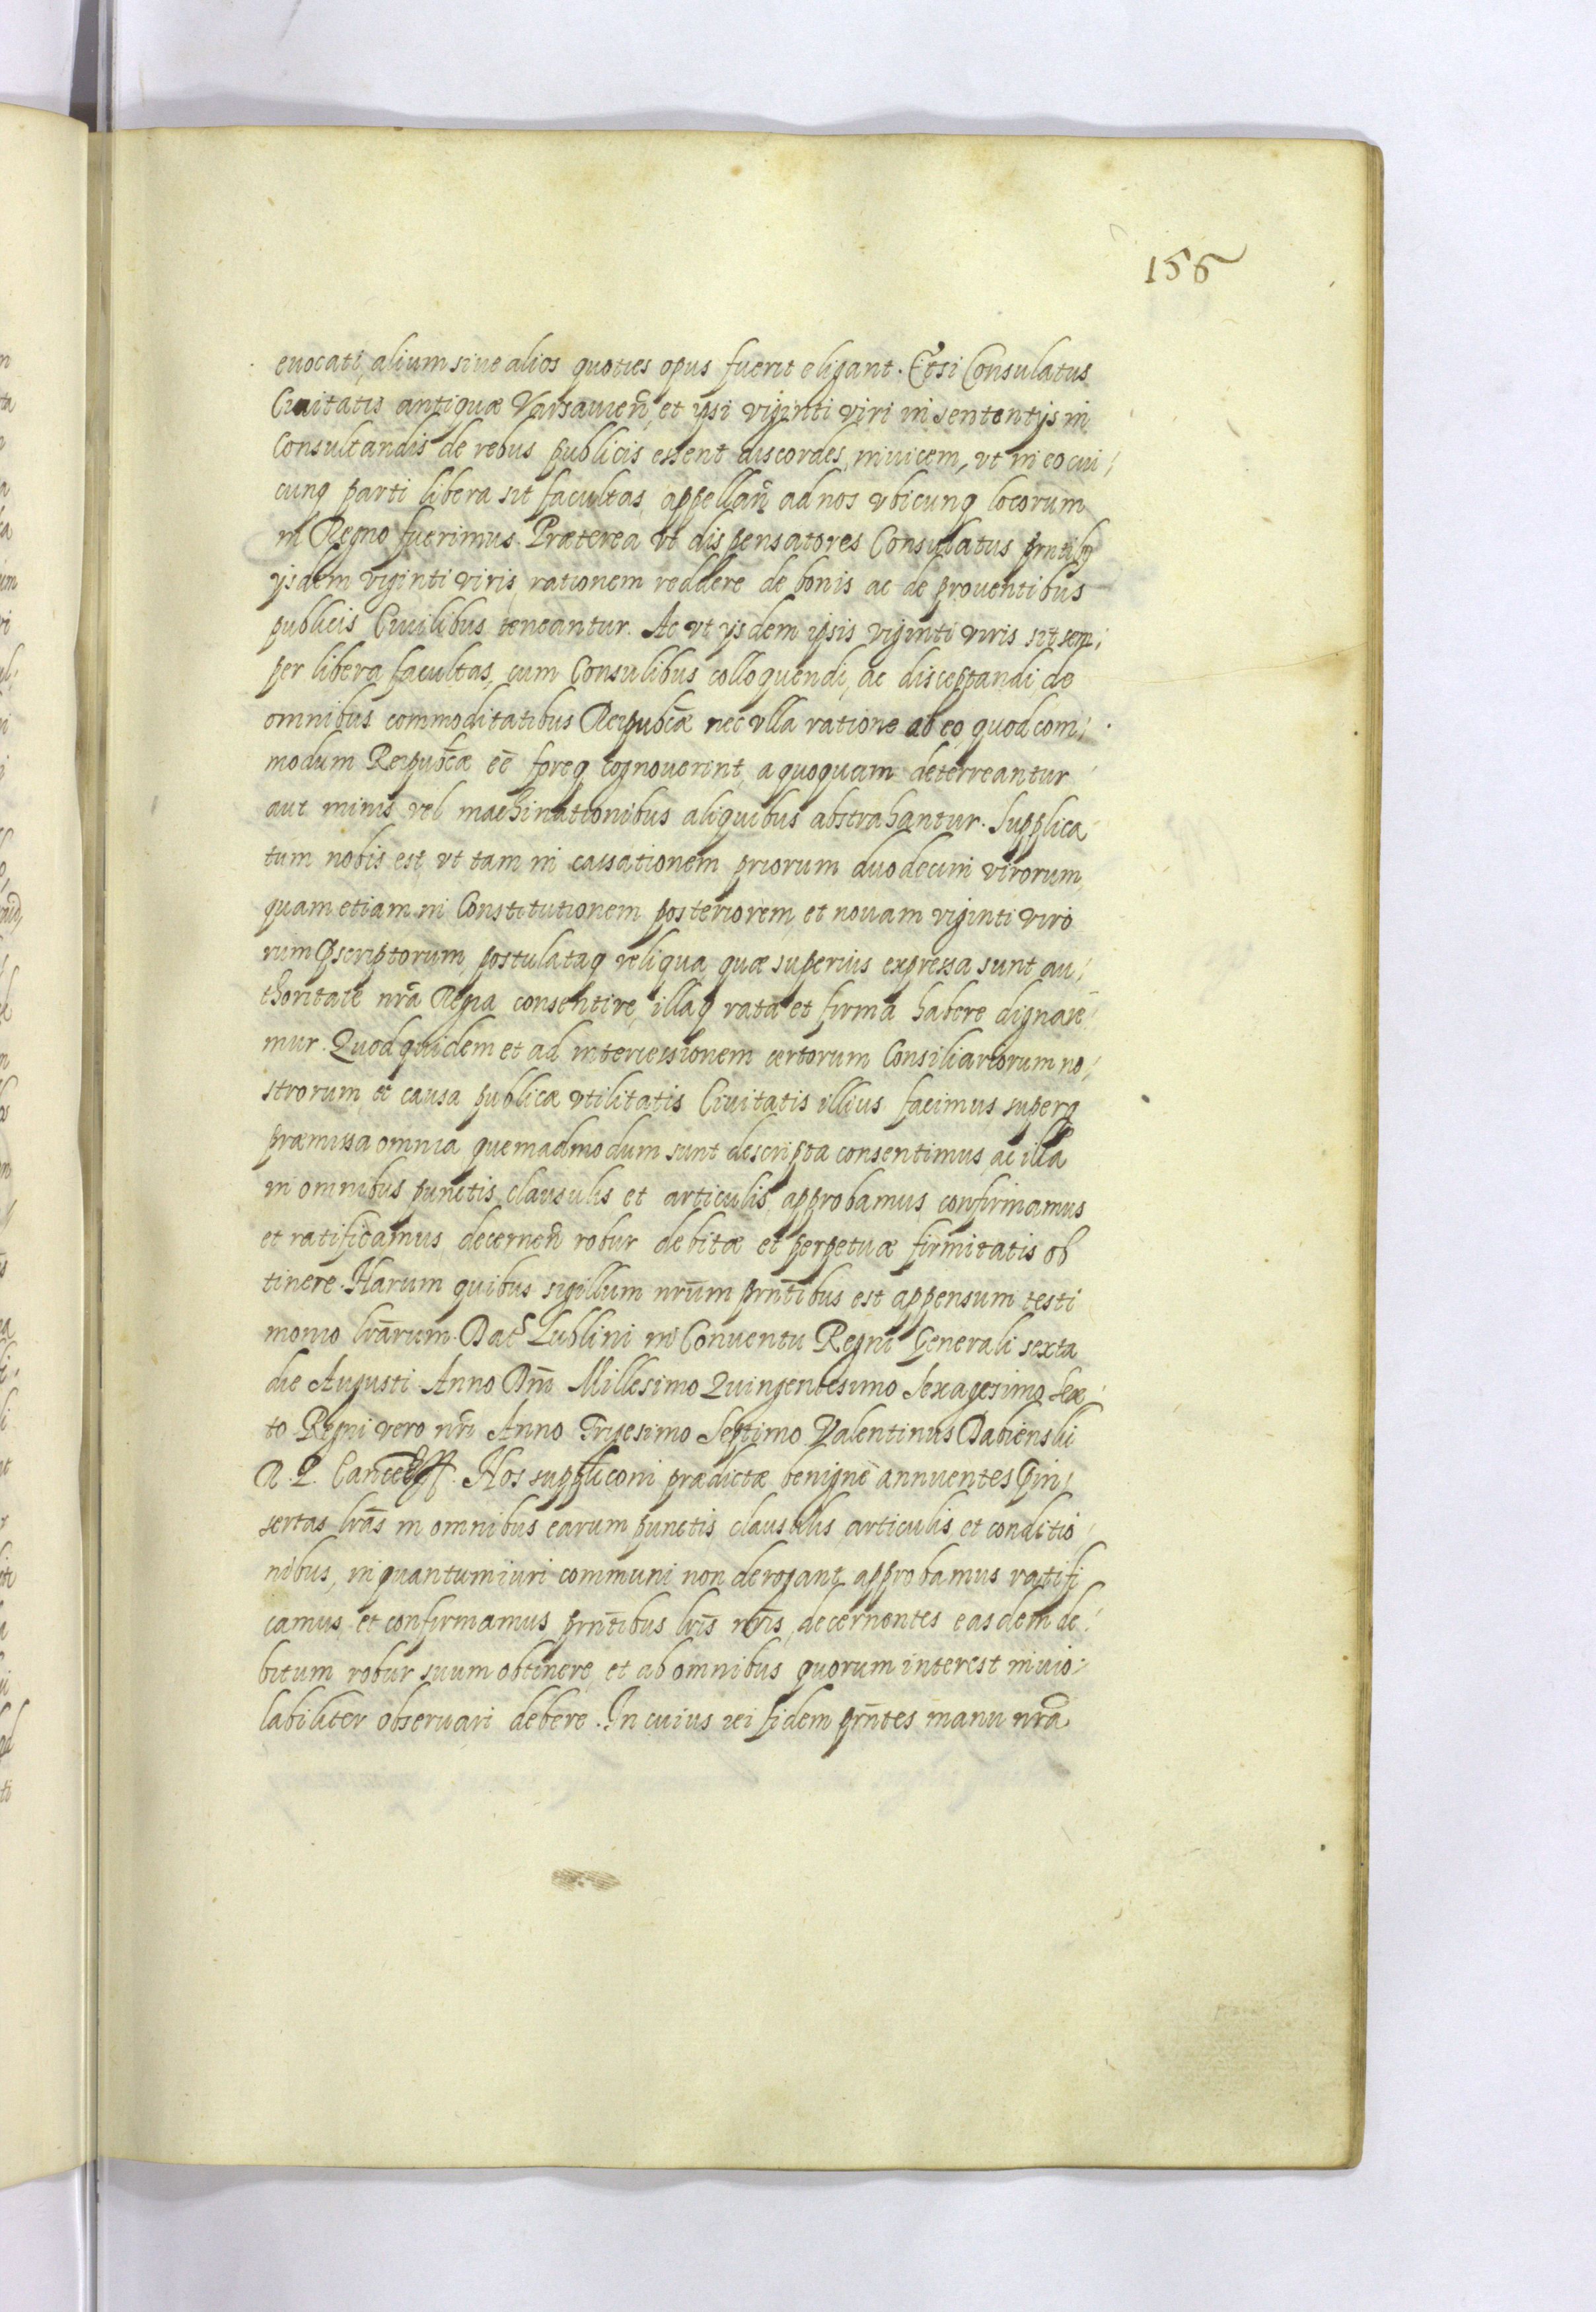 156
euocati, alium siue alios quoties opus fuerit eligant. Et si Consulatus
Ciuitatis antiquæ Varsauien̄, et ipsi viginti viri in sententijs in
Consultandis de rebus publicis essent discordes inuicem, vt in eo cui/
cunq parti libera sit facultas, appellan̄ ad nos vbicunq locorum
in Regno fuerimus. Præterea vt dispensatores Consulatus prntibq
ijsdem viginti viris, rationem reddere de bonis ac de prouentibus
publicis Ciuilibus teneantur. Ac vt ijsdem ipsis viginti viris sit sem/
per libera facultas, cum Consulibus colloquendi, ac disceptandi de
omnibus commoditatibus Reipubcæ nec vlla ratione ab eo, quod com/
modum Reipubcæ eē foreq cognouerint, a quoquam deterreantur
aut minis vel machinationibus aliquibus abstrahantur. Supplica
tum nobis est, vt tam in cassationem priorum duodecim virorum
quam etiam in Constitutionem posteriorem, et nouam viginti viro
rum Pscriptorum postulataq reliqua quæ superius expressa sunt au/
thoritate nrā Regia consentire, illaq rata et firma habere dignare
mur. Quod quidem et ad intercessionem certorum Consiliariorum no/
strorum, et causa publicæ vtilitatis Ciuitatis illius facimus, superq
præmissa omnia quemadmodum sunt descripta consentimus, ac illa
in omnibus punctis, clausulis et articulis, approbamus, confirmamus
et ratificamus, decernen̄ robur debitæ et perpetuæ firmitatis ob
tinere. Harum quibus sigillum nrūm prntībus est appensum testi
monio lrārum. Dat Lublini in Conuentu Regni Generali sexta
die Augusti Anno Dnī Millesimo Quingentesimo Sexagesimo Sex/
to Regni vero nrī Anno Trigesimo Septimo. Valentinus Dabienski
R. P. Cancell
Nos suppliconi prædictæ benigne annuentes Pin/
sertas lrās in omnibus earum punctis clausulis, articulis, et conditio/
nibus, in quantum iuri communi non derogant, approbamus ratifi
camus, et confirmamus prntībus lrīs nrīs, decernentes easdem de/
bitum robur suum obtinere, et ab omnibus quorum interest inuio/
labiliter obseruari debere. In cuius rei fidem prntēs manu nrā